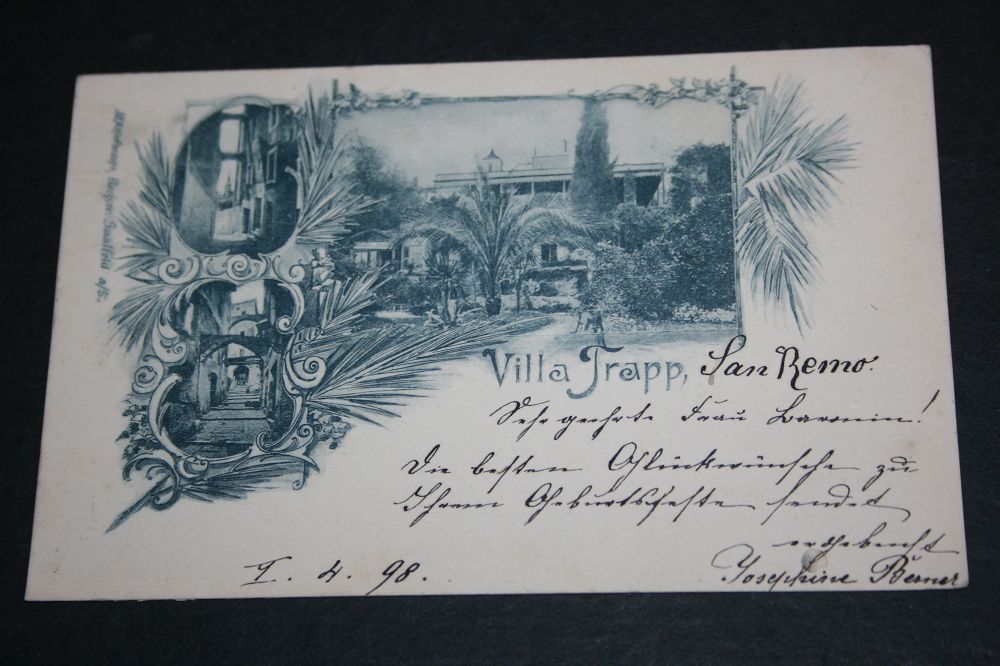 Villa Trapp, San Remo.
Sehr geehrte Frau Baronin!
Die besten Glückwünsche zu
Ihrem Geburtsfeste sendet
ergebenst
Josephine Berner
I. 4. 98.
Saalfeld a/S.